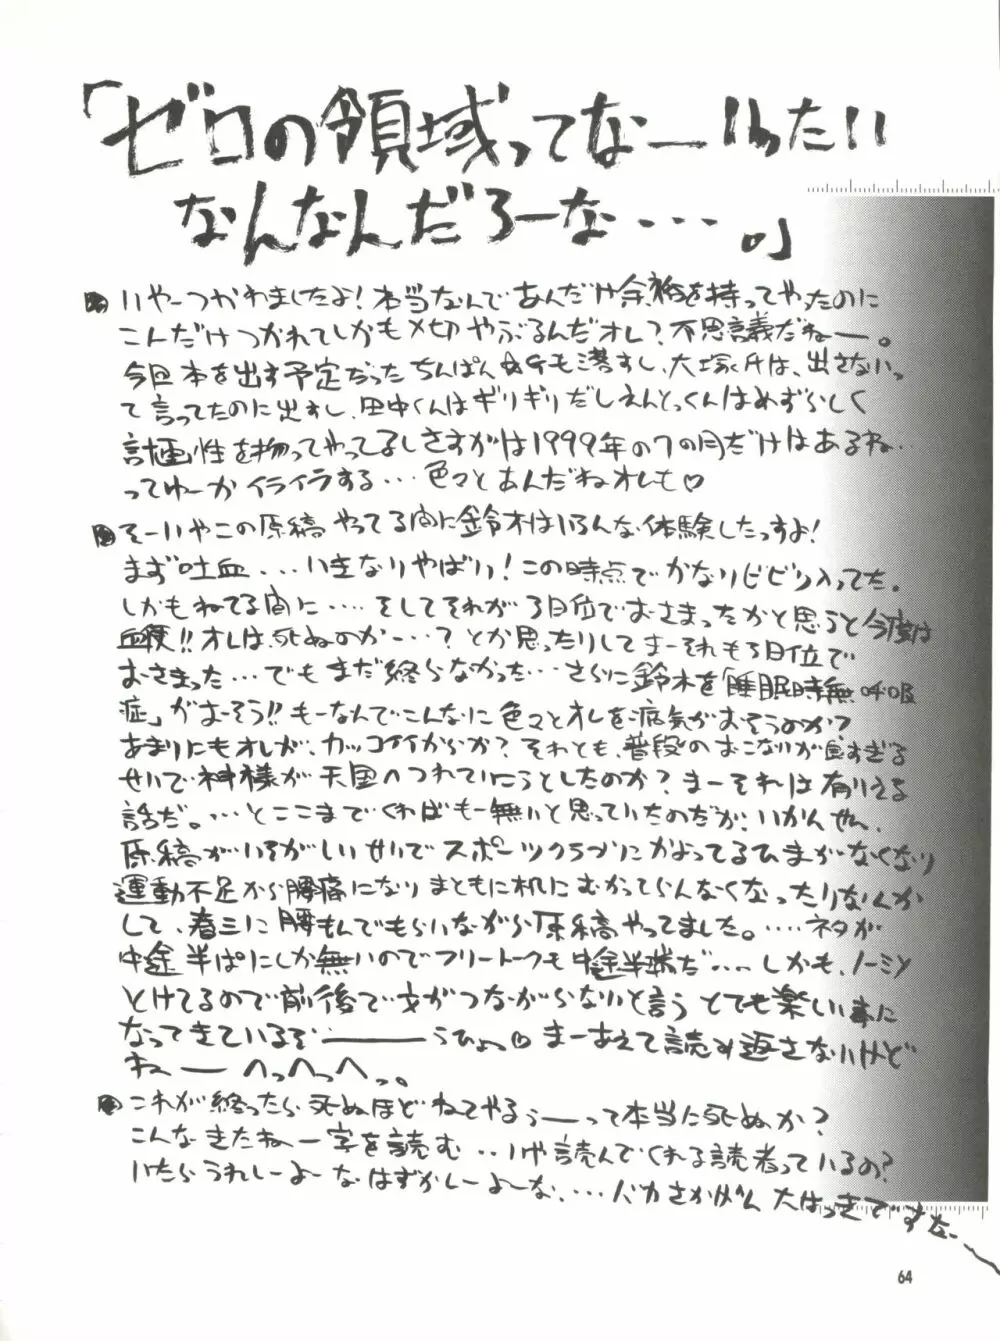 「ゼロの領域ってなーいったい
なんなんだろーな・・・。」
いやーつかれましたよ！本当なんであんだけ余裕を持ってやったのに
こんだけつかれてしかも〆切やぶるんだオレ？不思議だねー。
今回本を出す予定だったちんぱん☆Gも落すし、大塚氏は、出さないっ
て言ってたのに出すし、田中くんはギリギリだしえんとっくんはめずらしく
計画性を持ってやってるしさすがは1999年の7の月だけはあるね…
ってゆーかイライラする…色々とあんだねオレも♡
そーいやこの原稿やってる間に鈴木はいろんな体験したっすよ！
まず吐血...いきなりやばい！この時点でかなりビビリ入ってた。
しかもねてる間に‥‥そしてそれが3日位でおさまったかと思うと今度は
血便!!オレは死ぬのかー…？とか思ったりしてまーそれも3日位で
おさまった…でもまだ終らなかった…さらに鈴木を「睡眠時無呼吸
症」がおそう!!もーなんでこんなに色々とオレを病気がおそうのか？
あまりにもオレが、カッコイイからか？それとも、普段のおこないが良すぎる
せいで神様が天国へつれていこうとしたのか？まーそれは有りえる
話だ。…とここまでくればもー無いと思っていたのだが、いかんせん、
原稿がいそがしいせいでスポーツクラブにかよってるひまがなくなり
運動不足から腰痛になりまともに机にむかってらんなくなったりなんか
して、春三に腰もんでもらいながら原稿やってました。‥‥ネタが
中途半ぱにしか無いのでフリートークも中途半端だ...しかも、ノーミソ
とけてるので前後で文がつながらないと言うとても楽しい事に
なってきているぞーーうひょっ♡まーあえて読み返さないけど
ねーーへっへっへっ。
これが終ったら死ぬほどねてやるぅーって本当に死ぬか？
こんなきたねー字を読む‥いや読んでくれる読者っているの？
いたらうれしーよーなはずかしーよーな、…バカさかげん大はっきですなー
64